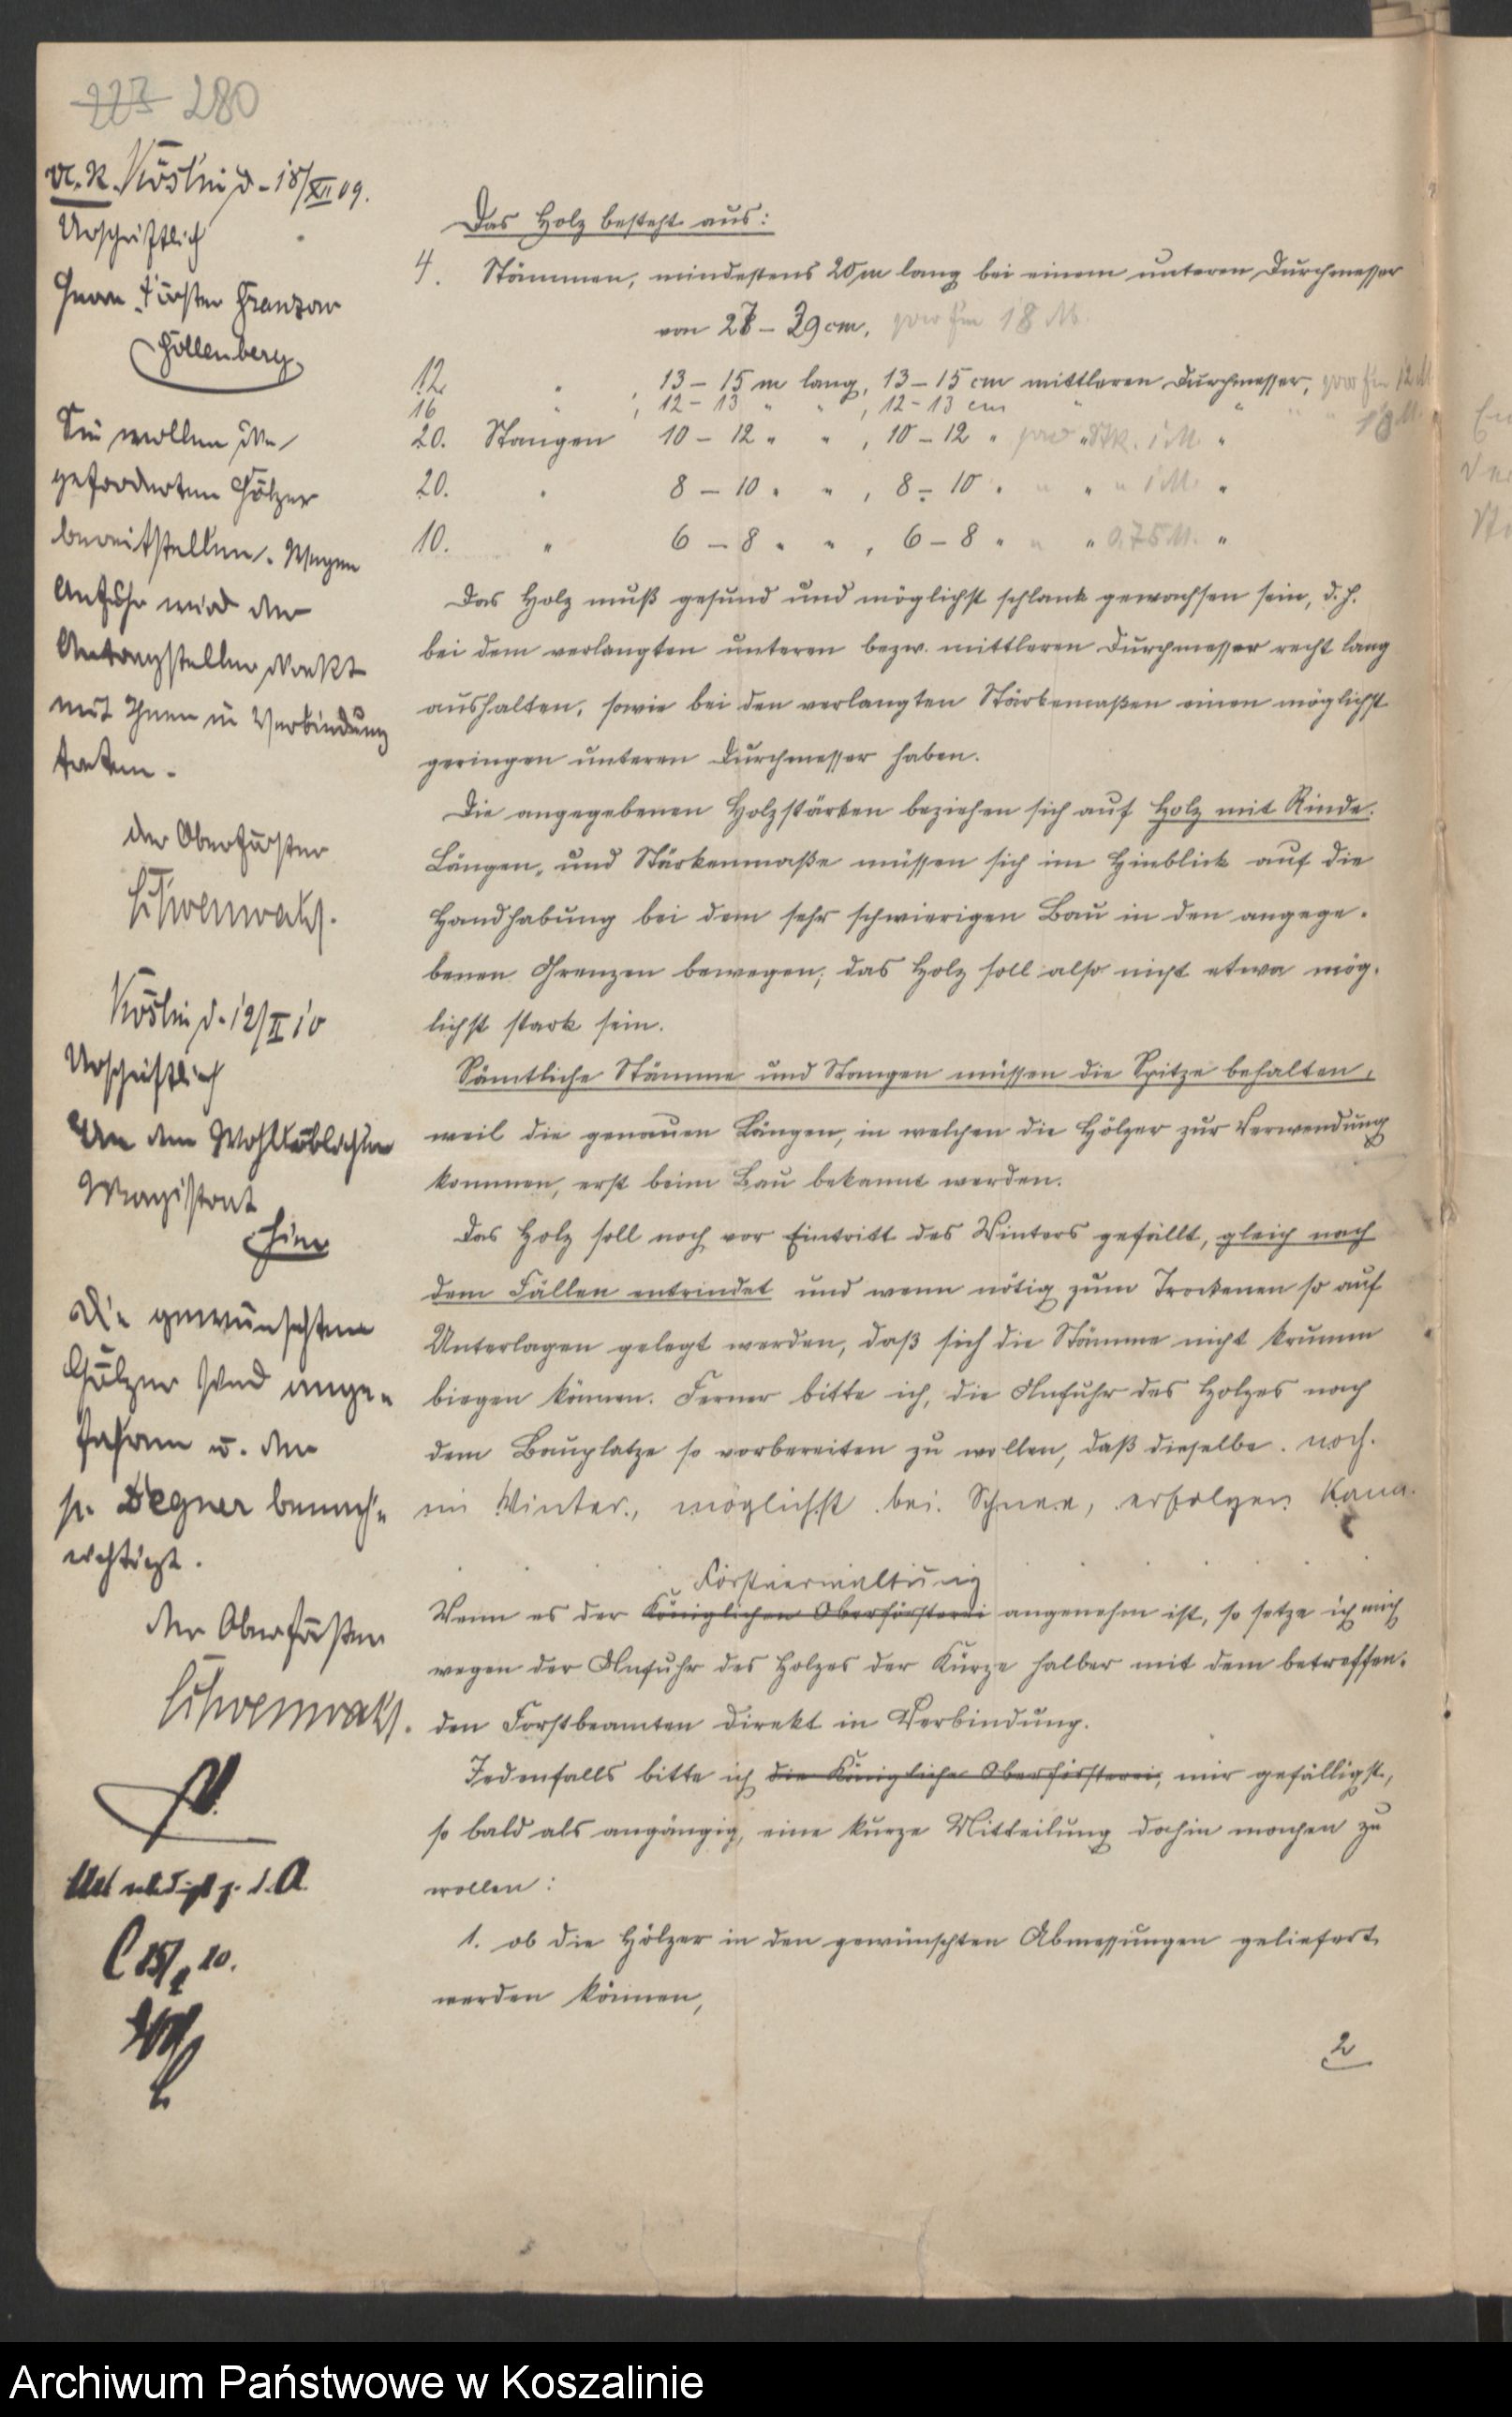 223 280
Köslin d. 18/XII 09.
Urschriftlich
Herrn Förster
Gollenberg
Sie wollen die
geforderten Hölzer
bereitstellen. Wegen
Anfuhr wird der
Antragsteller direkt
mit Ihnen in Verbindung
treten.
Der Oberförster
Köslin d. 12/II 10
Urschriftlich
An den Wohllöblichen
Magistrat
hier
Die gewünschten
Hölzer sind ange-
fahren u. der
p. Degner benach-
richtigt.
Der Oberförster
Das Holz besteht aus:
4. Stämmen, mindestens 20 m lang bei einem unteren Durchmesser
von 27 – 29 cm, pro fm 18 M.
12. " , 13 – 15 m lang, 13 – 15 cm mittleren Durchmesser, pro fm 12 M
16 " , 12 – 13 " " , 12 – 13 cm " " " "
20. Stangen 10 – 12 " " , 10 – 12 " pro " Stk. 1 M. "
20. " 8 – 10 " " , 8 – 10 " " " " 1 M. "
10. " 6 – 8 " " , 6 – 8 " " " 0,75 M. "
Das Holz muß gesund und möglichst schlank gewachsen sein, d. h.
bei dem verlangten unteren bezw. mittleren Durchmesser recht lang
aushalten, sowie bei den verlangten Stärkemaßen einen möglichst
geringen unteren Durchmesser haben.
Die angegebenen Holzstärken beziehen sich auf Holz mit Rinde.
Längen- und Stärkenmaße müssen sich im Hinblick auf die
Handhabung bei dem sehr schwierigen Bau in den angege-
benen Grenzen bewegen; das Holz soll also nicht etwa mög-
lichst stark sein.
Sämtliche Stämme und Stangen müssen die Spitze behalten,
weil die genauen Längen, in welchen die Hölzer zur Verwendung
kommen, erst beim Bau bekannt werden.
Das Holz soll noch vor Eintritt des Winters gefällt, gleich nach
dem Fällen entrindet und wenn nötig zum Trockenen so auf
Unterlagen gelegt werden, daß sich die Stämme nicht krumm
biegen können. Ferner bitte ich, die Anfuhr des Holzes nach
dem Bauplatze so vorbereiten zu wollen, daß dieselbe noch
im Winter, möglichst bei Schnee, erfolgen kann.
Forstverwaltung
Wenn es der Königlichen Oberförsterei angenehm ist, so setze ich mich
wegen der Anfuhr des Holzes der Kürze halber mit dem betreffen-
den Forstbeamten direkt in Verbindung.
Jedenfalls bitte ich die Königliche Oberförsterei, mir gefälligst,
so bald als angängig, eine kurze Mitteilung dahin machen zu
wollen:
1. ob die Hölzer in den gewünschten Abmessungen geliefert
werden können,
2
Archiwum Państwowe w Koszalinie